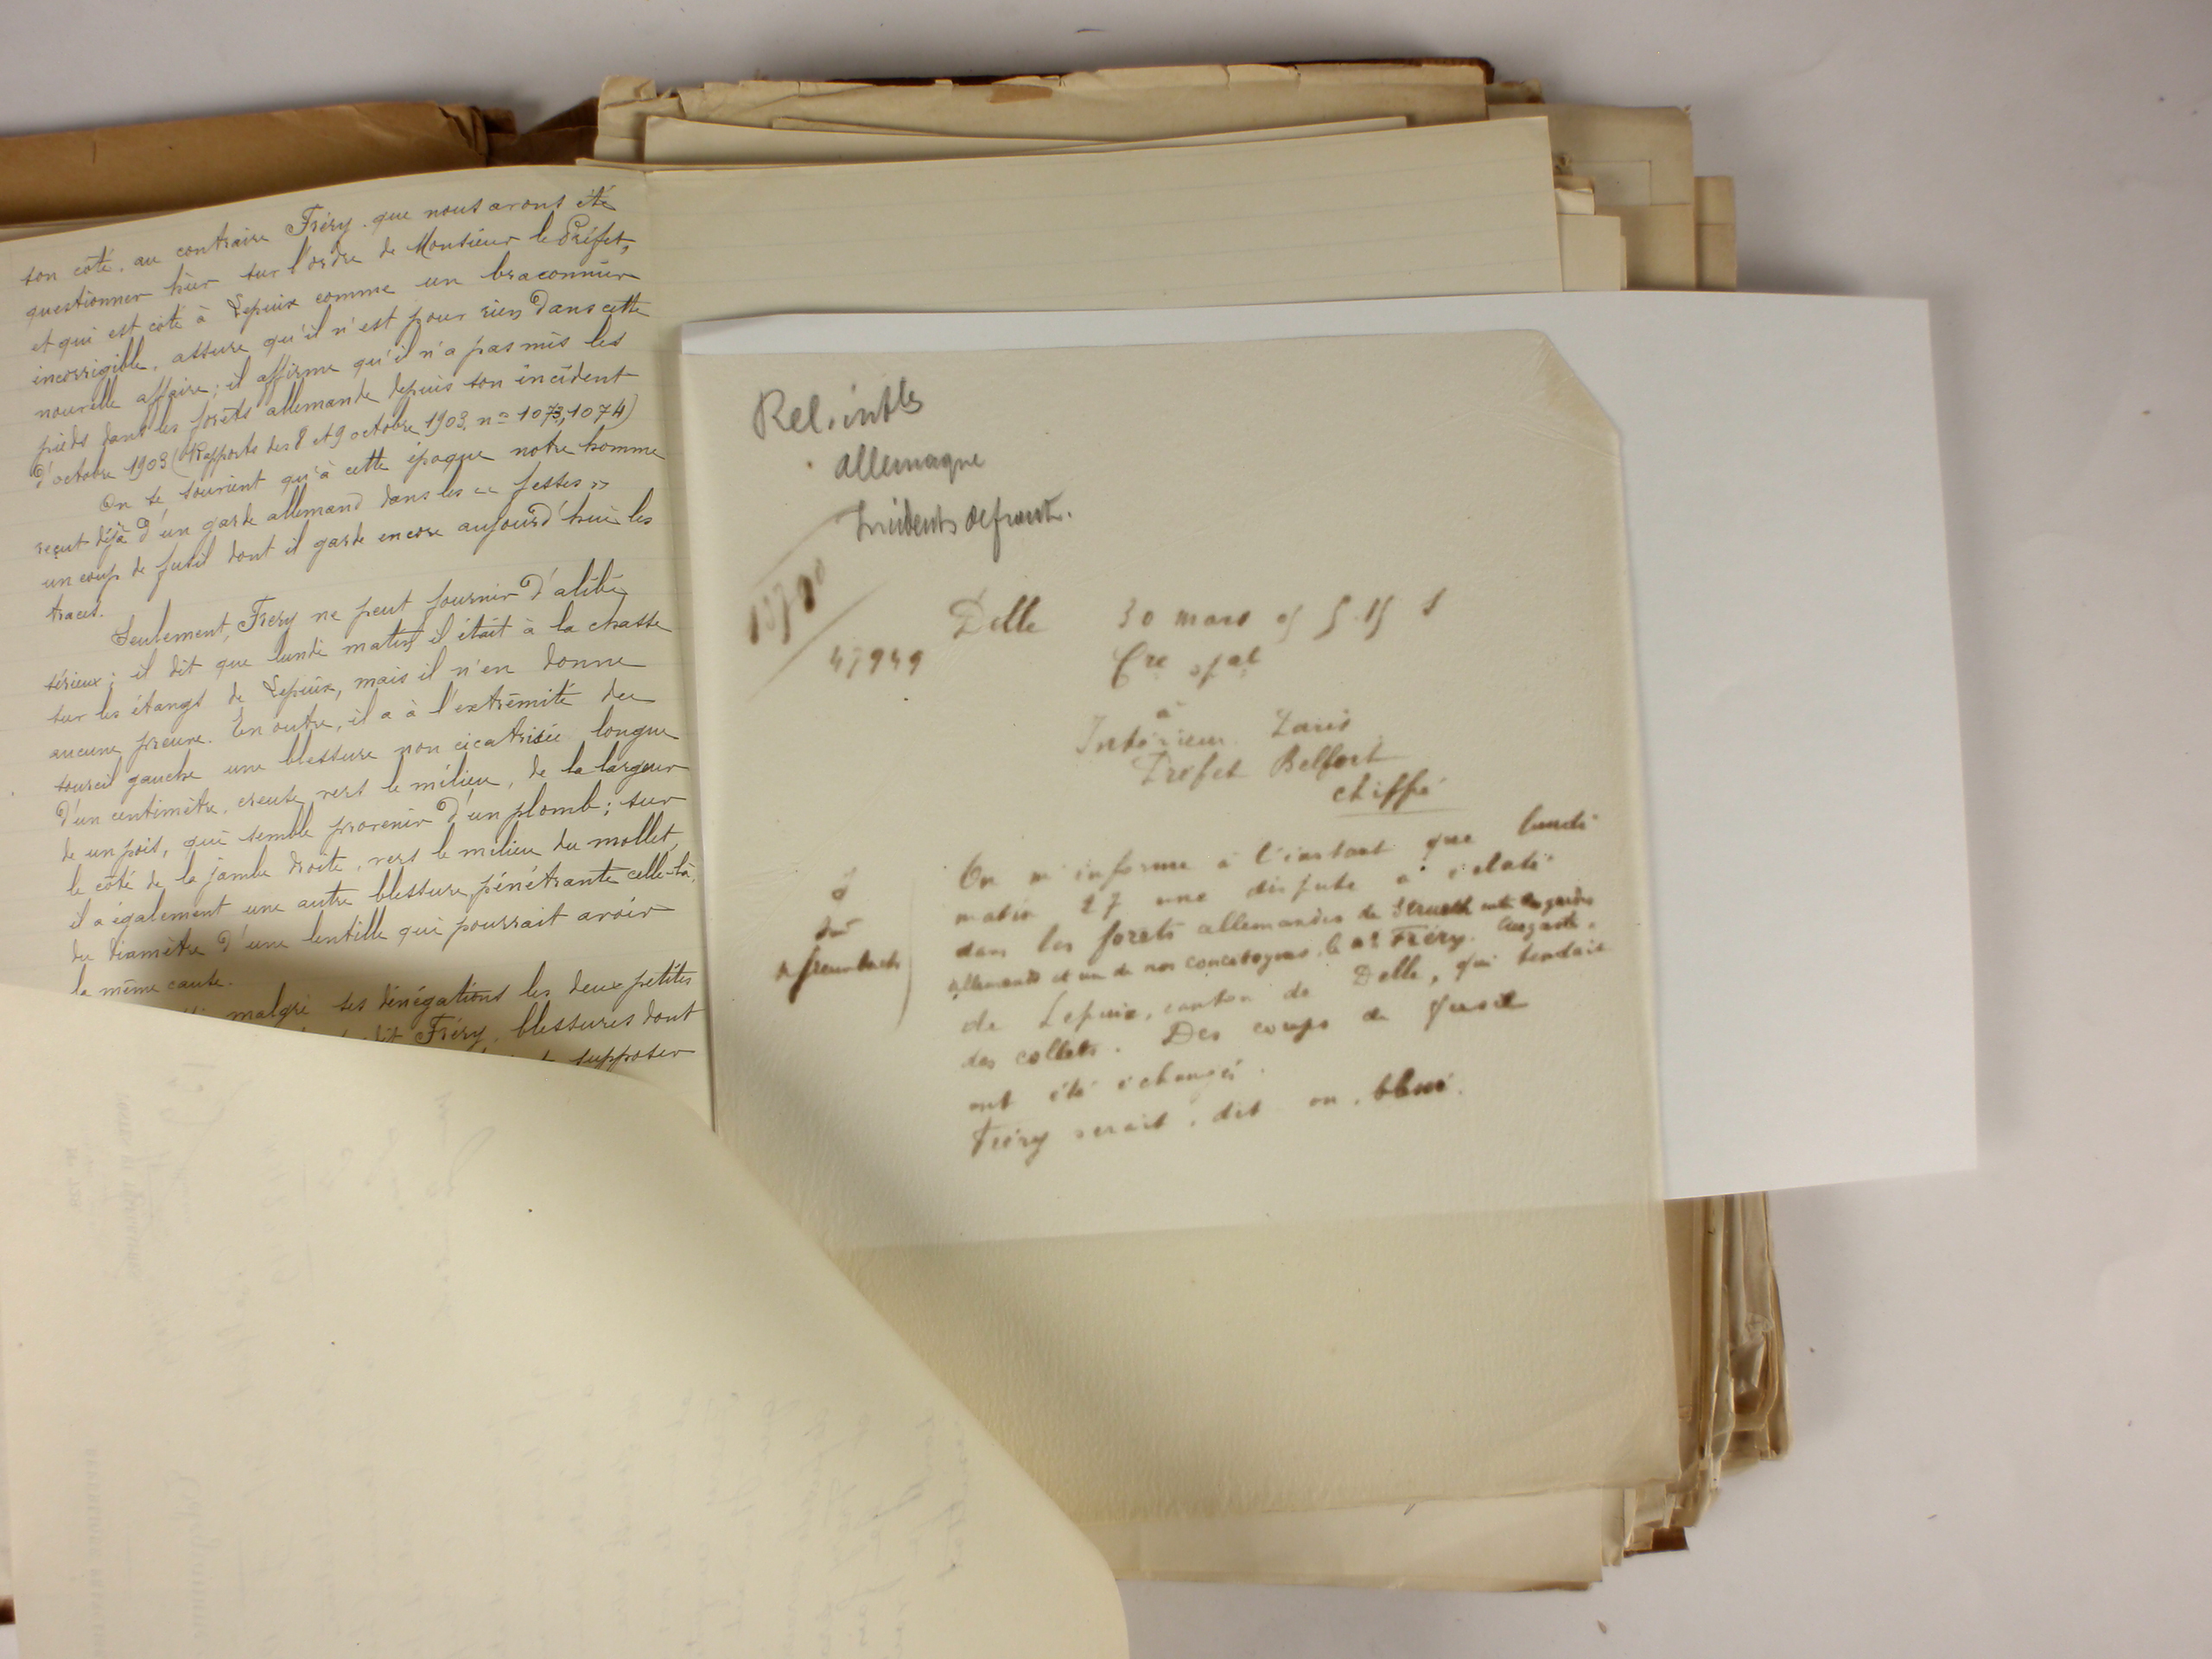 son côté, au contraire Fréry que nous avons été
questionner hier sur l'ordre de Monsieur le Préfet,
et qui est coté à Lepuix comme un braconnier
incorrigible, assure qu'il n'est pour rien dans cette
nouvelle affaire ; il affirme qu'il n'a pas mis les
pieds dans les forêts allemande depuis son incident
d'octobre 1903 (Rapports des 8 et 9 octobre 1903. no 1073, 1074)
On se souvient qu'à cette époque notre homme
reçut déjà d'un garde allemand dans les « fesses »
un coup de fusil dont il garde encore aujourd'hui les
traces.
Seulement, Fréry ne peut fournir d'alibi
sérieux ; il dit que lundi matin il était à la chasse
sur les étangs de Lepuix, mais il n'en donne
aucune preuve. En outre, il a à l'extrémité du
sourcil gauche une blessure non cicatrisée longue
d'un centimètre, creuse vers le milieu, de la largeur
de un pois, qui semble provenir d'un plomb ; sur
le côté de la jambe droite, vers le milieu du mollet,
il a également une autre blessure pénétrante celle-là,
du diamètre d'une lentille qui pourrait avoir
la même cause.
malgré ses dénégations les deux petites
dit Fréry, blessures dont
supposer
Rel. intles
Allemagne
Incidents de front.
47949
Delle 30 mars 05 5.15 S
Cre spal
à
Intérieur Paris
Préfet Belfort
chiffré
On m'informe à l'instant que lundi
matin 27 une dispute a éclaté
dans les forêts allemandes de Strueth entre les gardes
allemands et un de nos concitoyens, le né Fréry Auguste,
de Lepuix, canton de Delle, qui tendait
des collets. Des coups de fusil
ont été échangés.
Fréry serait, dit-on, blessé.